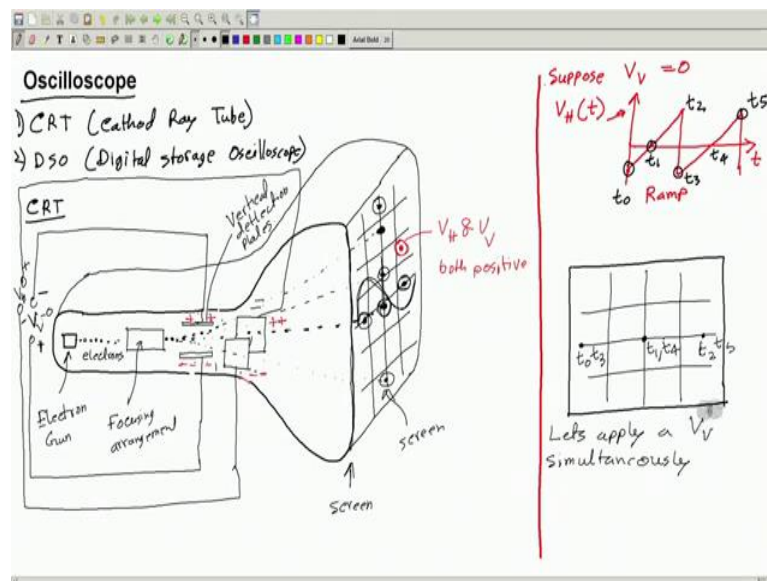 Arial Bold
Oscilloscope
1) CRT (Cathod Ray Tube)
2) DSO (Digital storage Oscilloscope)
CRT
Vertical
deflection
plates
electrons
Electron
Gun
Focusing
arrangement
screen
screen
V_H & V_V
both positive
Suppose V_V = 0
V_H(t)
t2
t5
t1
t4
t
t3
t0
Ramp
t0 t3
t1, t4
t2 t5
Lets apply a V_V
simultaneously